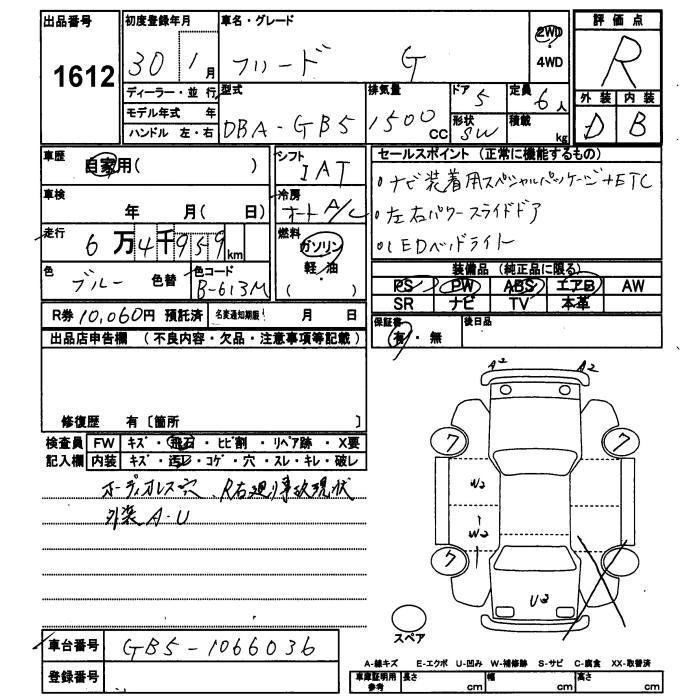 出品番号 1612
初度登録年月 30 1月
車名・グレード フリード G
2WD
4WD
評価点 R
外装 D 内装 B
ディーラー・並行
モデル年式 年
ハンドル 左・右
型式 DBA-GB5
排気量 1500 CC
ドア 5
形状 SW
定員 6人
積載 kg
車歴 自家用( )
シフト IAT
車検 年 月( 日)
冷房 オート A/C
走行 6万4千959km
燃料 ガソリン
軽・油
( )
色 ブルー 色替
色コード B-613M
R券 10,060円 預託済 名変通知期限 月 日
セールスポイント (正常に機能するもの)
・ナビ装着用スペシャルパッケージ+ETC
・左右パワースライドドア
・LEDヘッドライト
装備品 (純正品に限る)
PS PW ABS エアB AW
SR ナビ TV 本革
保証書 有・無
後日品
出品店申告欄 (不良内容・欠品・注意事項等記載)
修復歴 有〔箇所 〕
検査員 FW キズ・飛石・ヒビ割・リペア跡・X要
記入欄 内装 キズ・汚レ・コゲ・穴・スレ・キレ・破レ
オーディオレス穴 R右廻り事故現状
外装A-U
A2 A2
7 7
W2
W2
7 7
U3
スペア
車台番号 GB5-1066036
登録番号
A-線キズ E-エクボ U-凹み W-補修跡 S-サビ C-腐食 XX-取替済
車庫証明用参考 長さ cm 幅 cm 高さ cm